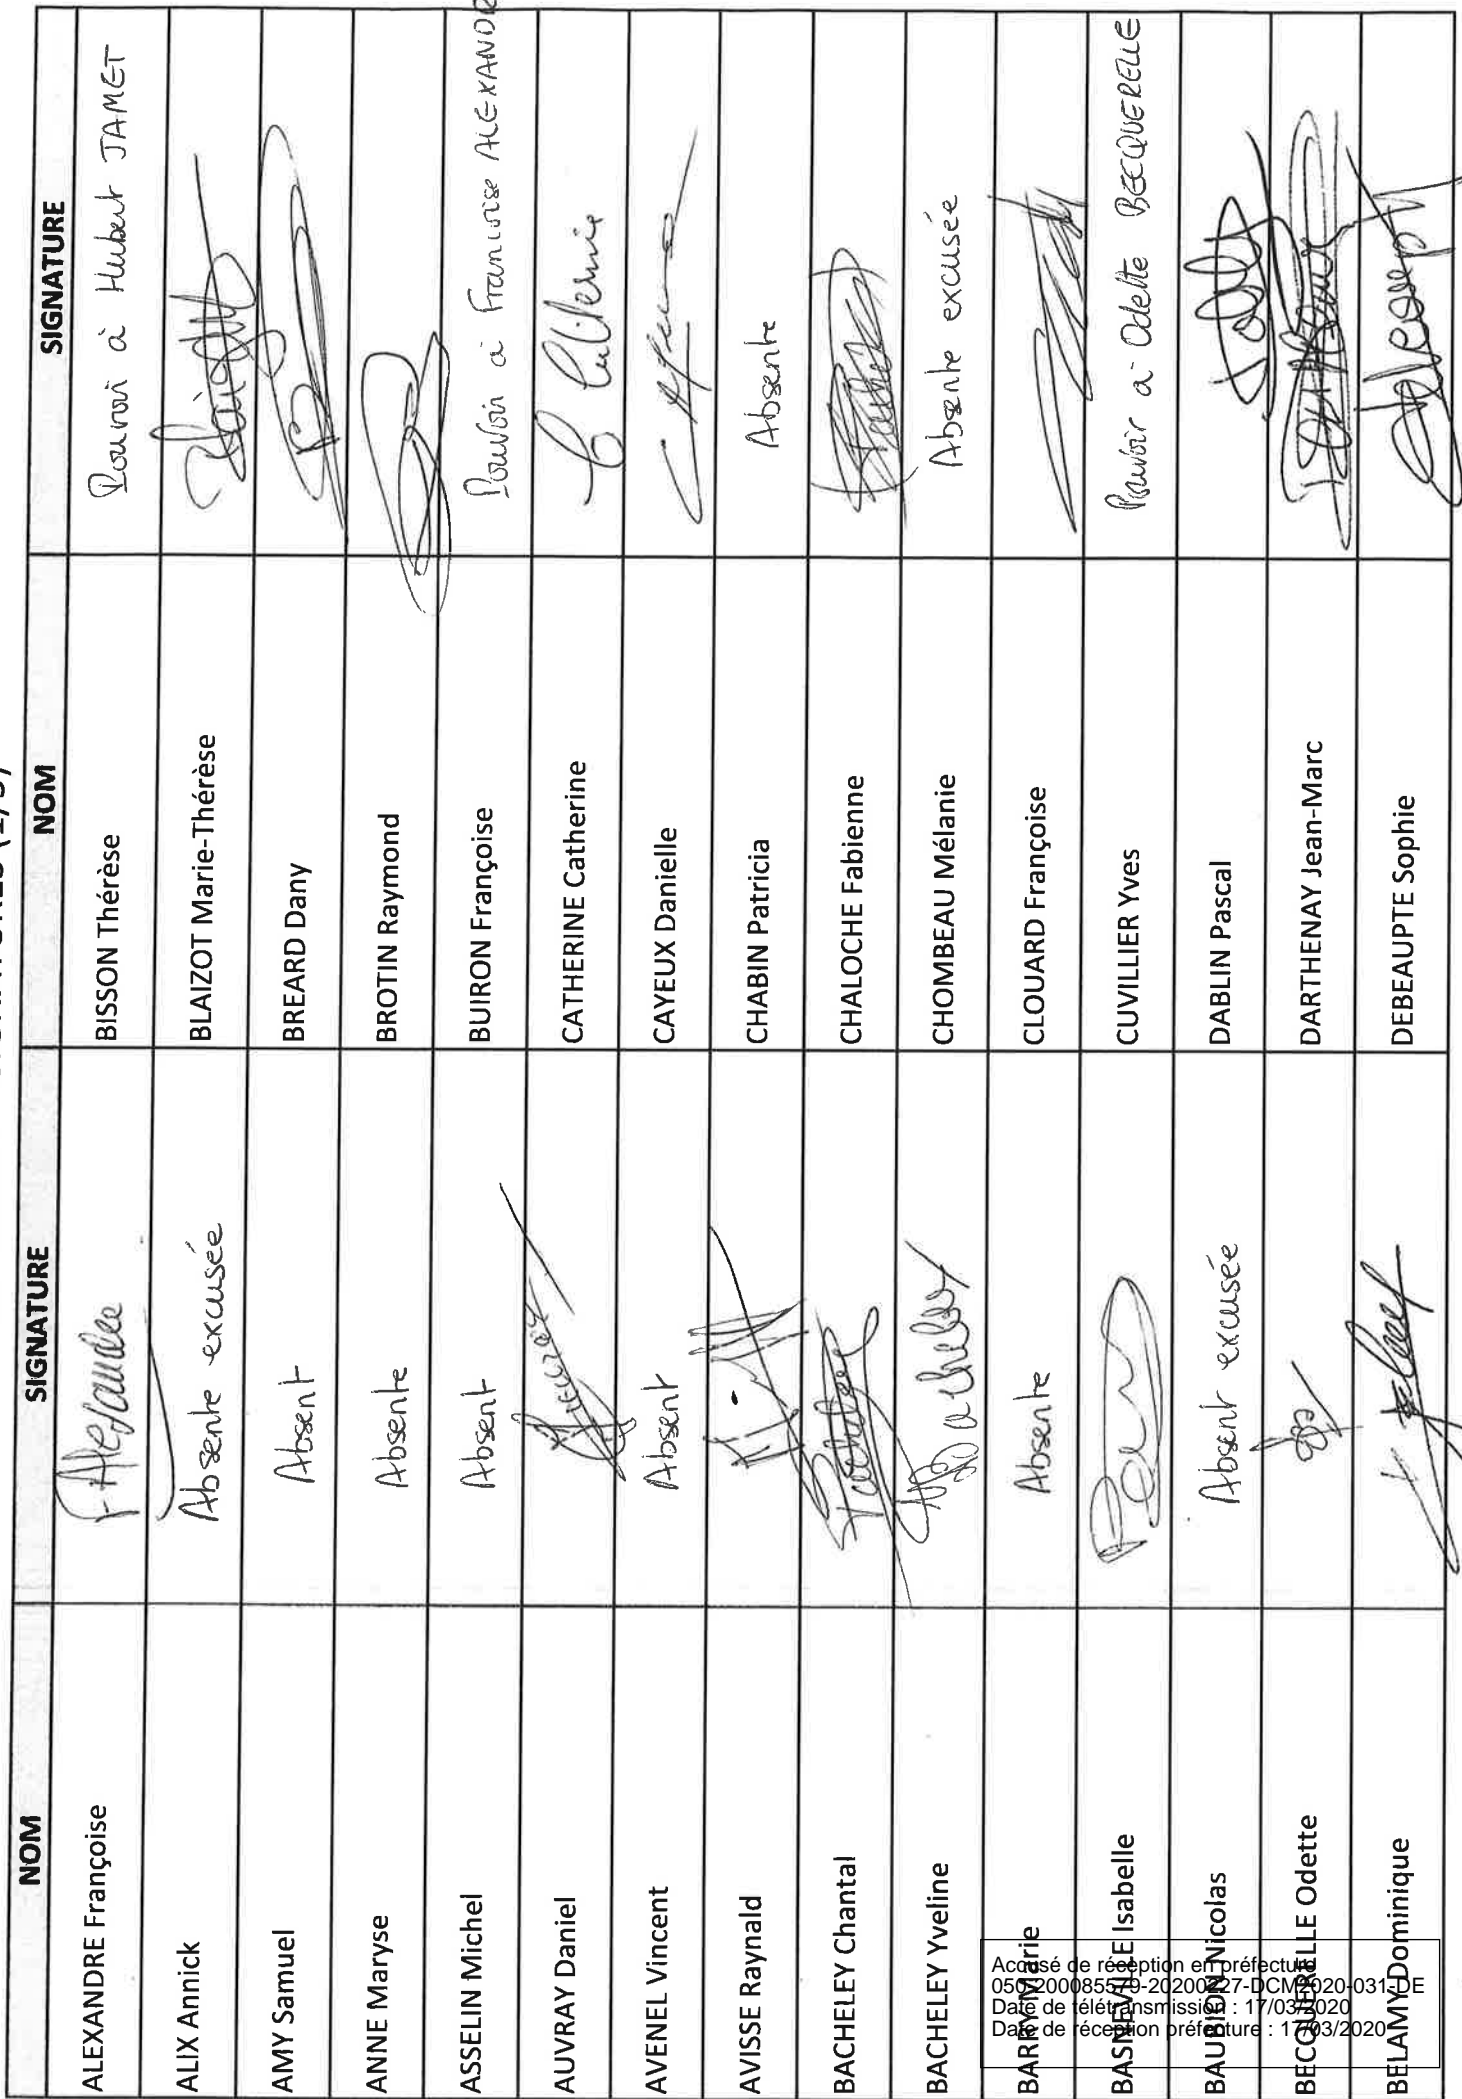 NOM SIGNATURE NOM SIGNATURE
ALEXANDRE Françoise F. Alexandre BISSON Thérèse Pouvoir à Hubert JAMET
ALIX Annick Absente excusée BLAIZOT Marie-Thérèse
AMY Samuel Absent BREARD Dany
ANNE Maryse Absente BROTIN Raymond
ASSELIN Michel Absent BUIRON Françoise Pouvoir à Françoise ALEXANDR
AUVRAY Daniel CATHERINE Catherine
AVENEL Vincent Absent CAYEUX Danielle
AVISSE Raynald CHABIN Patricia Absente
BACHELEY Chantal CHALOCHE Fabienne
BACHELEY Yveline CHOMBEAU Mélanie Absente excusée
BARRY Marie Absente CLOUARD Françoise
BASNEVILLE Isabelle CUVILLIER Yves Pouvoir à Odette BECQUERELLE
BAUBION Nicolas Absent excusée DABLIN Pascal
BECQUERELLE Odette DARTHENAY Jean-Marc
BELAMY Dominique DEBEAUPTE Sophie
Accusé de réception en préfecture
050-200085579-20200227-DCM2020-031-DE
Date de télétransmission : 17/03/2020
Date de réception préfecture : 17/03/2020